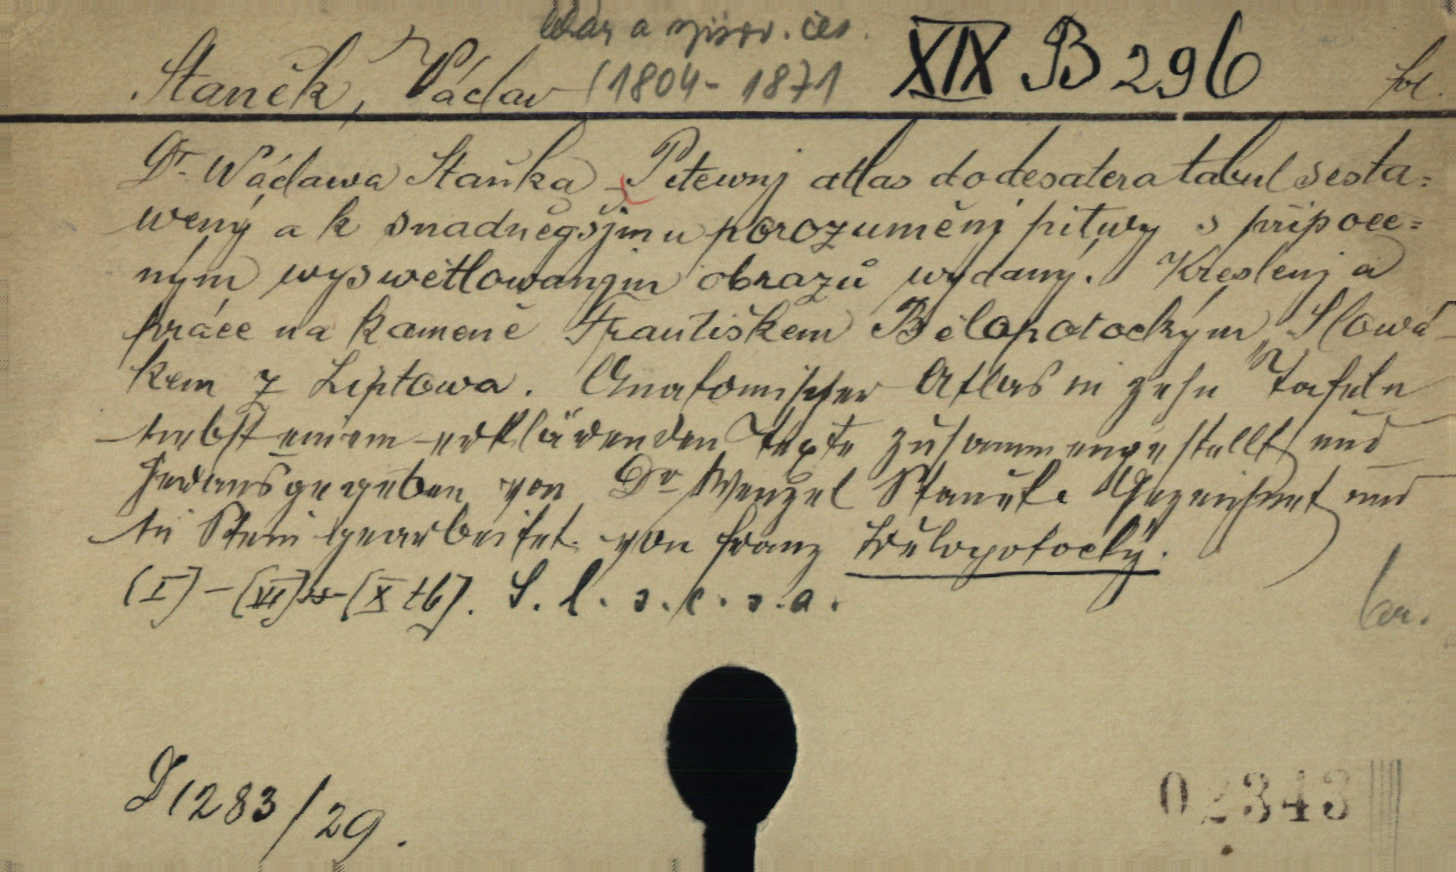 lékař a spisov. čes.
Staněk, Václav (1804-1871 XIX B 296 fol.
Dr. Wáclawa Staňka Pitewnj atlas do desatera tabul sesta=
wený a k snadněgšjmu porozuměnj pitwy s připoge=
ným wyswětlowanjm obrazů wydaný. Kreslenj a
práce na kameně Františkem Bělopotockým, Slowá-
kem z Liptowa. Anatomischer Atlas in zehn Tafeln
nebst einem erklärenden Texte zusammengestellt und
herausgegeben von Dr Wenzel Staněk. Gezeichnet und
in Stein gearbeitet von Franz Bělopotocký.
(I)-[VI]-[X tb]. S. l. s. e. s. a.
br.
D 1283/29.
02343